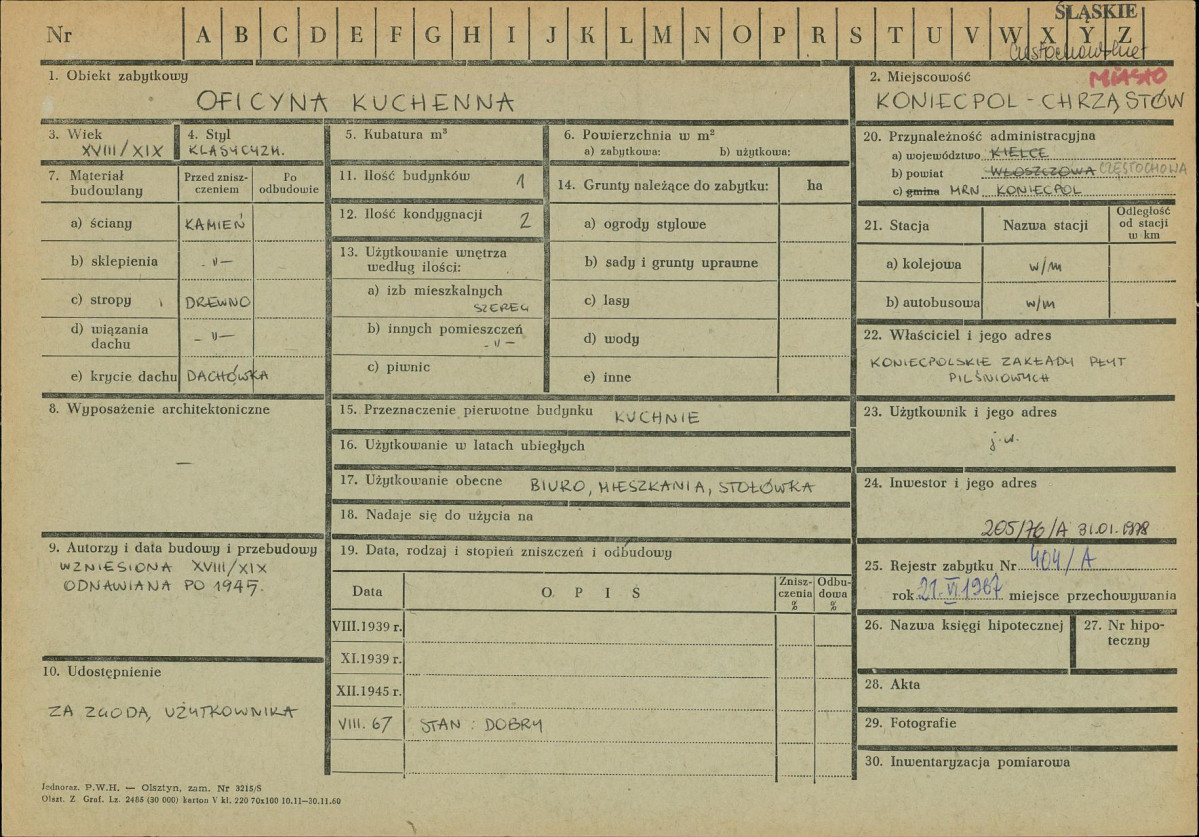 ŚLĄSKIE
Nr A B C D E F G H I J K L M N O P R S T U V W X Y Z
MIASTO
1. Obiekt zabytkowy
OFICYNA KUCHENNA
2. Miejscowość
KONIECPOL - CHRZĄSTÓW
3. Wiek
XVIII/XIX
4. Styl
KLASYCYZM.
5. Kubatura m³
6. Powierzchnia w m²
a) zabytkowa: b) użytkowa:
20. Przynależność administracyjna
a) województwo KIELCE
b) powiat WŁOSZCZOWA CZĘSTOCHOWA
c) gmina MRN KONIECPOL
7. Materiał budowlany
Przed znisz-
czeniem
Po
odbudowie
a) ściany KAMIEŃ
b) sklepienia -"-
c) stropy DREWNO
d) wiązania
dachu -"-
e) krycie dachu DACHÓWKA
11. Ilość budynków 1
12. Ilość kondygnacji 2
13. Użytkowanie wnętrza
według ilości:
a) izb mieszkalnych
SZEREG
b) innych pomieszczeń
-"-
c) piwnic
14. Grunty należące do zabytku: ha
a) ogrody stylowe
b) sady i grunty uprawne
c) lasy
d) wody
e) inne
21. Stacja Nazwa stacji Odległość
od stacji
w km
a) kolejowa w/m
b) autobusowa w/m
22. Właściciel i jego adres
KONIECPOLSKIE ZAKŁADY PŁYT
PILŚNIOWYCH
8. Wyposażenie architektoniczne
—
15. Przeznaczenie pierwotne budynku KUCHNIE
16. Użytkowanie w latach ubiegłych
17. Użytkowanie obecne BIURO, MIESZKANIA, STOŁÓWKA
18. Nadaje się do użycia na
23. Użytkownik i jego adres
j.w.
24. Inwestor i jego adres
205/76/A 31.01.1978
9. Autorzy i data budowy i przebudowy
WZNIESIONA XVIII/XIX
ODNAWIANA PO 1945.
19. Data, rodzaj i stopień zniszczeń i odbudowy
Data OPIS Znisz-
czenia
% Odbu-
dowa
%
VIII.1939 r.
XI.1939 r.
XII.1945 r.
VIII. 67 STAN : DOBRY
25. Rejestr zabytku Nr 404/A
rok 21.VI 1967 miejsce przechowywania
26. Nazwa księgi hipotecznej
27. Nr hipo-
teczny
10. Udostępnienie
ZA ZGODĄ UŻYTKOWNIKA
28. Akta
29. Fotografie
30. Inwentaryzacja pomiarowa
Jednoraz. P.W.H. — Olsztyn, zam. Nr 3215/S
Olszt. Z. Graf. Lz. 2455 (30 000) karton V kl. 220 70x100 10.11—30.11.60